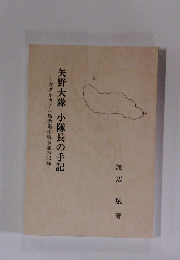 矢野大隊 小隊長の手記
ガダルカナル島撤退作戦後衛の記録
渡辺 敏 著